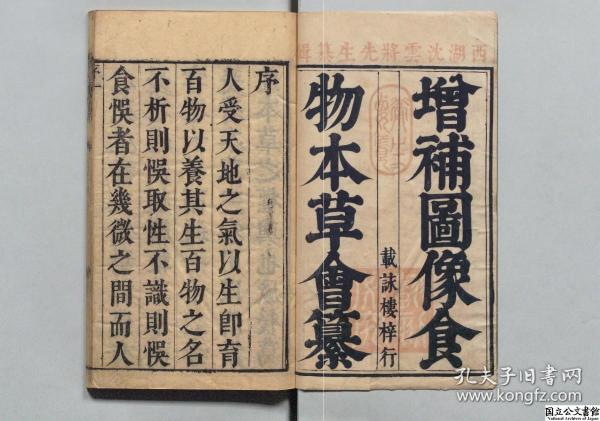 西湖沈雲將先生纂輯
增補圖像食
物本草會纂
載詠樓梓行
序
人受天地之氣以生卽育
百物以養其生百物之名
不析則悞取性不識則悞
食悞者在幾微之間而人
序一
孔夫子旧书网
www.kongfz.com
国立公文書館
National Archives of Japan